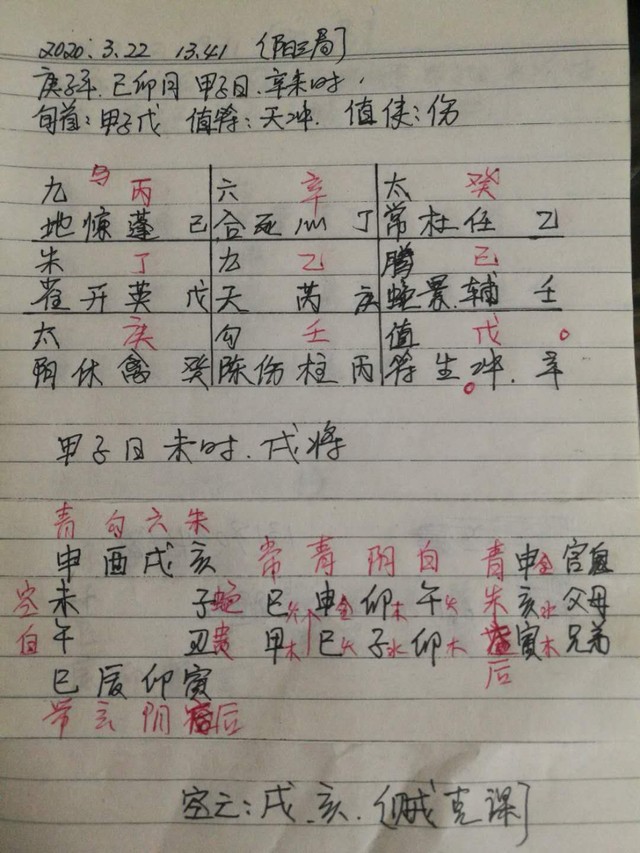 2020.3.22 13.41 〔阳三局〕
庚子年.已卯月 甲子日.辛未时,
旬首:甲子戊 值符:天冲. 值使:伤
九 马 丙 六 辛 太 癸
地惊蓬 己 合死心 丁 常杜任 乙
朱 丁 九 乙 腾 已
雀开英 戊 天 芮 庚 蛇景.辅 壬
太 庚 勾 壬 值 戊 。
阴休禽 癸 陈伤柱 丙 符生冲.辛
甲子日 未时.戌将
青 勾 六 朱
申 酉 戌 亥 常 青 阴 白 青 申金 官鬼
空 未 子 蛇 巳火 申金 卯木 午火 朱 亥水 父母
白 午 丑 贵 甲木 巳火 子水 卯木 寅木 兄弟
后
巳 辰 卯 寅
常 玄 阴 后
空亡:戌.亥.〔贼克课〕